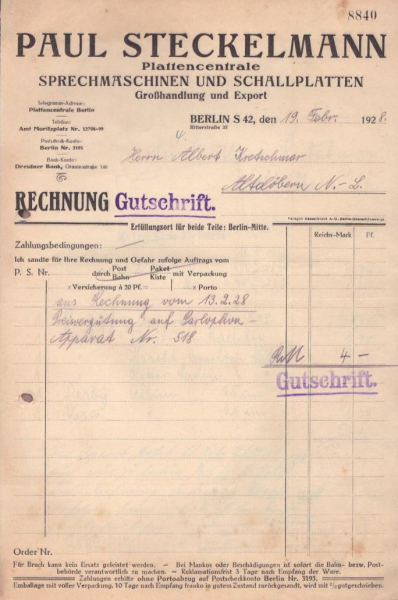 8840
PAUL STECKELMANN
Plattencentrale
SPRECHMASCHINEN UND SCHALLPLATTEN
Großhandlung und Export
Telegramm-Adresse:
Plattencentrale Berlin
Telefon:
Amt Moritzplatz Nr. 12798-99
Postscheck-Konto:
Berlin Nr. 3195
Bank-Konto:
Dresdner Bank,
BERLIN S 42, den 19. Febr. 1928.
Ritterstraße
Herrn Albert Kretschmar
Altdöbern N.-L.
RECHNUNG Gutschrift.
Erfüllungsort für beide Teile: Berlin-Mitte.
Zahlungsbedingungen:
Reichs-Mark Pf.
Ich sandte für Ihre Rechnung und Gefahr zufolge Auftrags vom
P. S. Nr. durch Post Paket mit Verpackung
Bahn Kiste
x Versicherung à 20 Pf. x Porto
aus Rechnung vom 13.2.28
Preisvergütung auf Parlophon-
Apparat Nr. 518
RM 4 —
Gutschrift.
Order Nr.
Für Bruch kann kein Ersatz geleistet werden. — Bei Mankos oder Beschädigungen ist sofort die Bahn- bezw. Post-
behörde verantwortlich zu machen. — Reklamationsfrist 3 Tage nach Empfang der Ware.
Zahlungen erbitte ohne Portoabzug auf Postscheckkonto Berlin Nr. 3195.
Emballage mit voller Verpackung, 10 Tage nach Empfang franko in gutem Zustand zurückgesandt, wird mit gutgeschrieben.